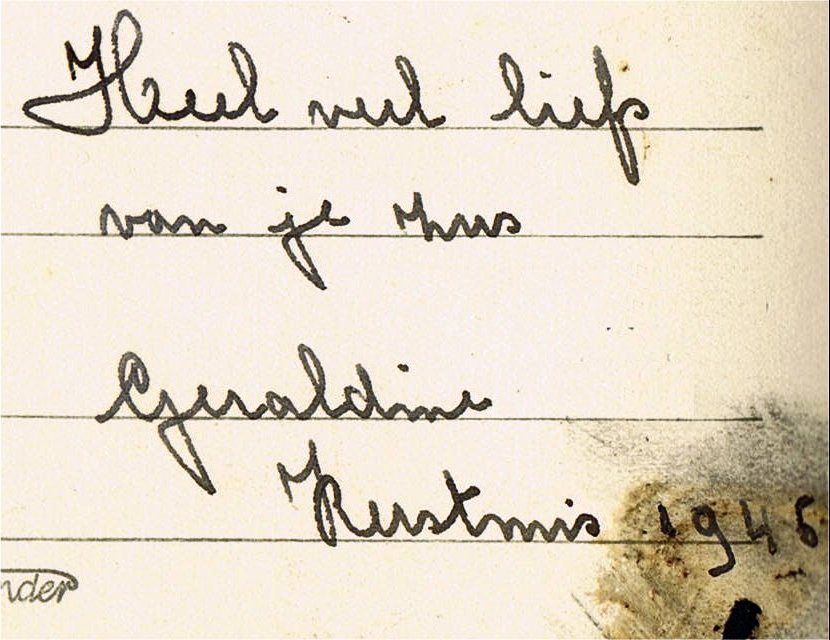 Heel veel liefs
van je zus
Geraldine
Kerstmis 1945
nder